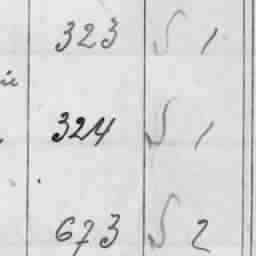 323 S 1
324 S 1
673 S 2